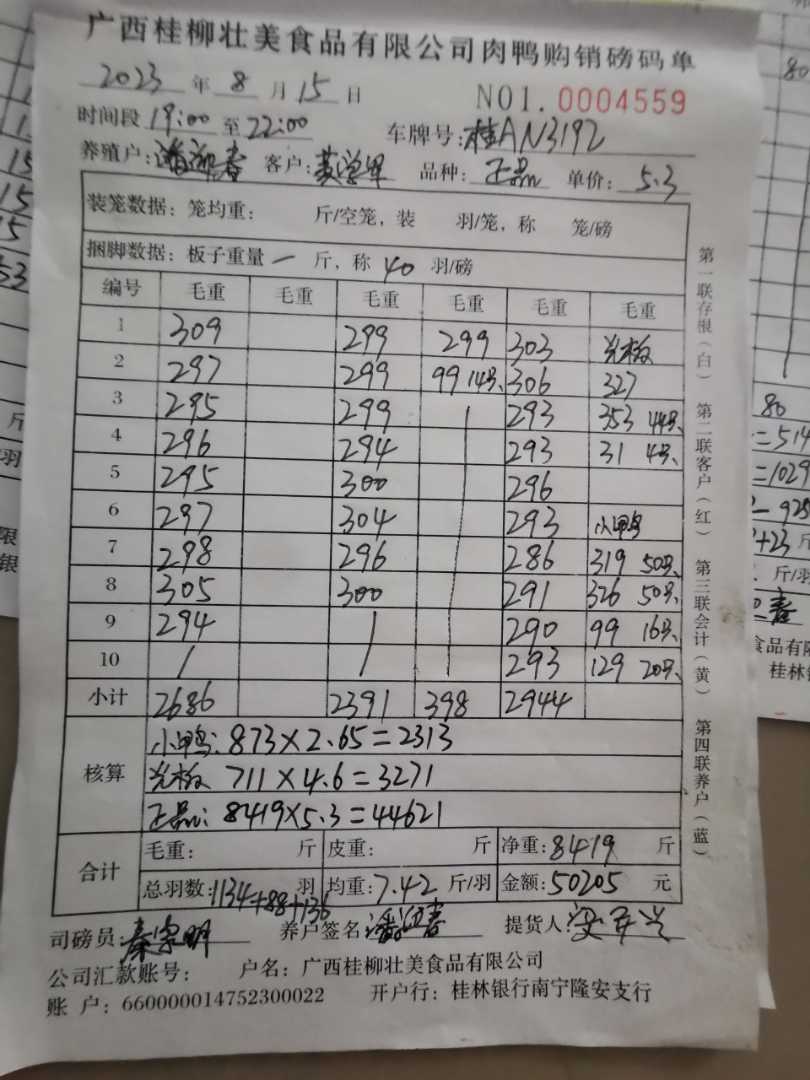 广西桂柳壮美食品有限公司肉鸭购销磅码单
2023 年 8 月 15 日 NO1. 0004559
时间段 19:00 至 22:00 车牌号: 桂AN3192
养殖户: 潘迎春 客户: 黄 品种: 正品 单价: 5.3
装笼数据: 笼均重: 斤/空笼, 装 羽/笼, 称 笼/磅
捆脚数据: 板子重量 一 斤, 称 40 羽/磅
编号 毛重 毛重 毛重 毛重 毛重 毛重
1 309 299 299 303 光板
2 297 299 99 14只、 306 327
3 295 299 / 293 353 44只、
4 296 294 293 31 4只、
5 295 300 296
6 297 304 293 小鸭
7 298 296 286 319 50只、
8 305 300 291 326 50只、
9 294 / 290 99 16只、
10 / / 293 129 20只、
小计 2686 2391 398 2944
核算
小鸭: 873×2.65=2313
光板 711×4.6=3271
正品: 8419×5.3=44621
合计
毛重: 斤 皮重: 斤 净重: 8419 斤
总羽数: 1134+88+136 羽 均重: 7.42 斤/羽 金额: 50205 元
司磅员: 秦家明 养户签名: 潘迎春 提货人:
公司汇款账号: 户名: 广西桂柳壮美食品有限公司
账 户: 660000014752300022 开户行: 桂林银行南宁隆安支行
第一联存根(白) 第二联客户(红) 第三联会计(黄) 第四联养户(蓝)
80
80
=514
=1029
-925
+23 斤
斤/羽
春
食品有限
桂林银
15
15
15
53
斤
羽
限
银